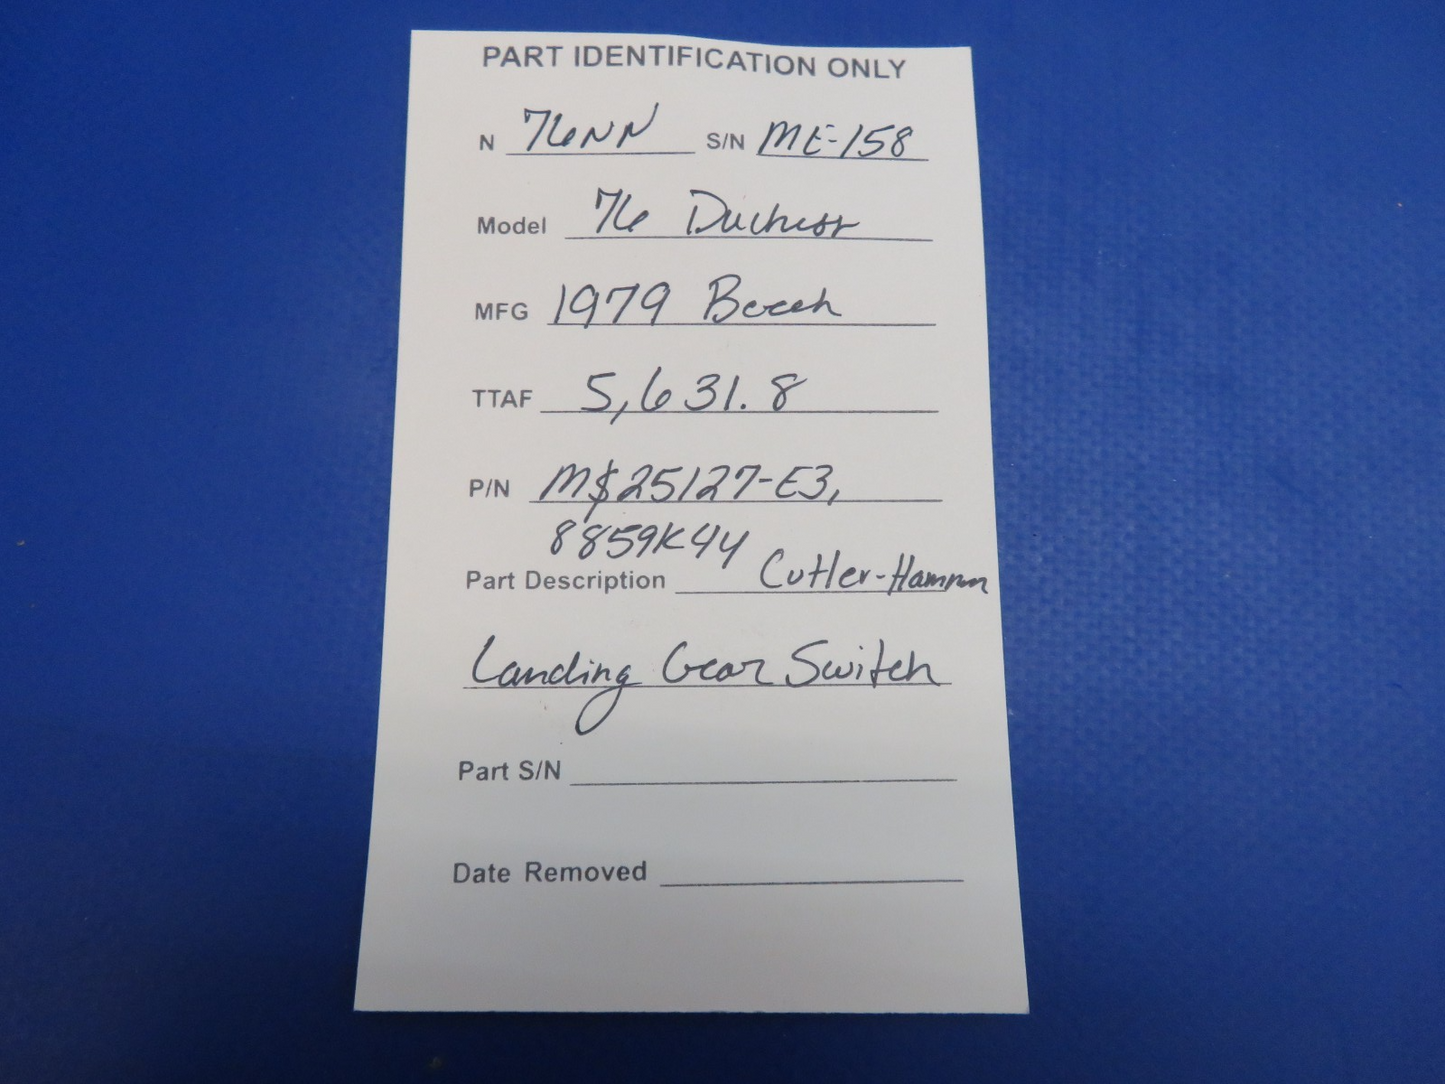 PART IDENTIFICATION ONLY
N 76NN S/N ME-158
Model 76 Duchess
MFG 1979 Beech
TTAF 5,631.8
P/N M$25127-E3,
8859K4Y
Part Description Cutler-Hammer
Landing Gear Switch
Part S/N
Date Removed